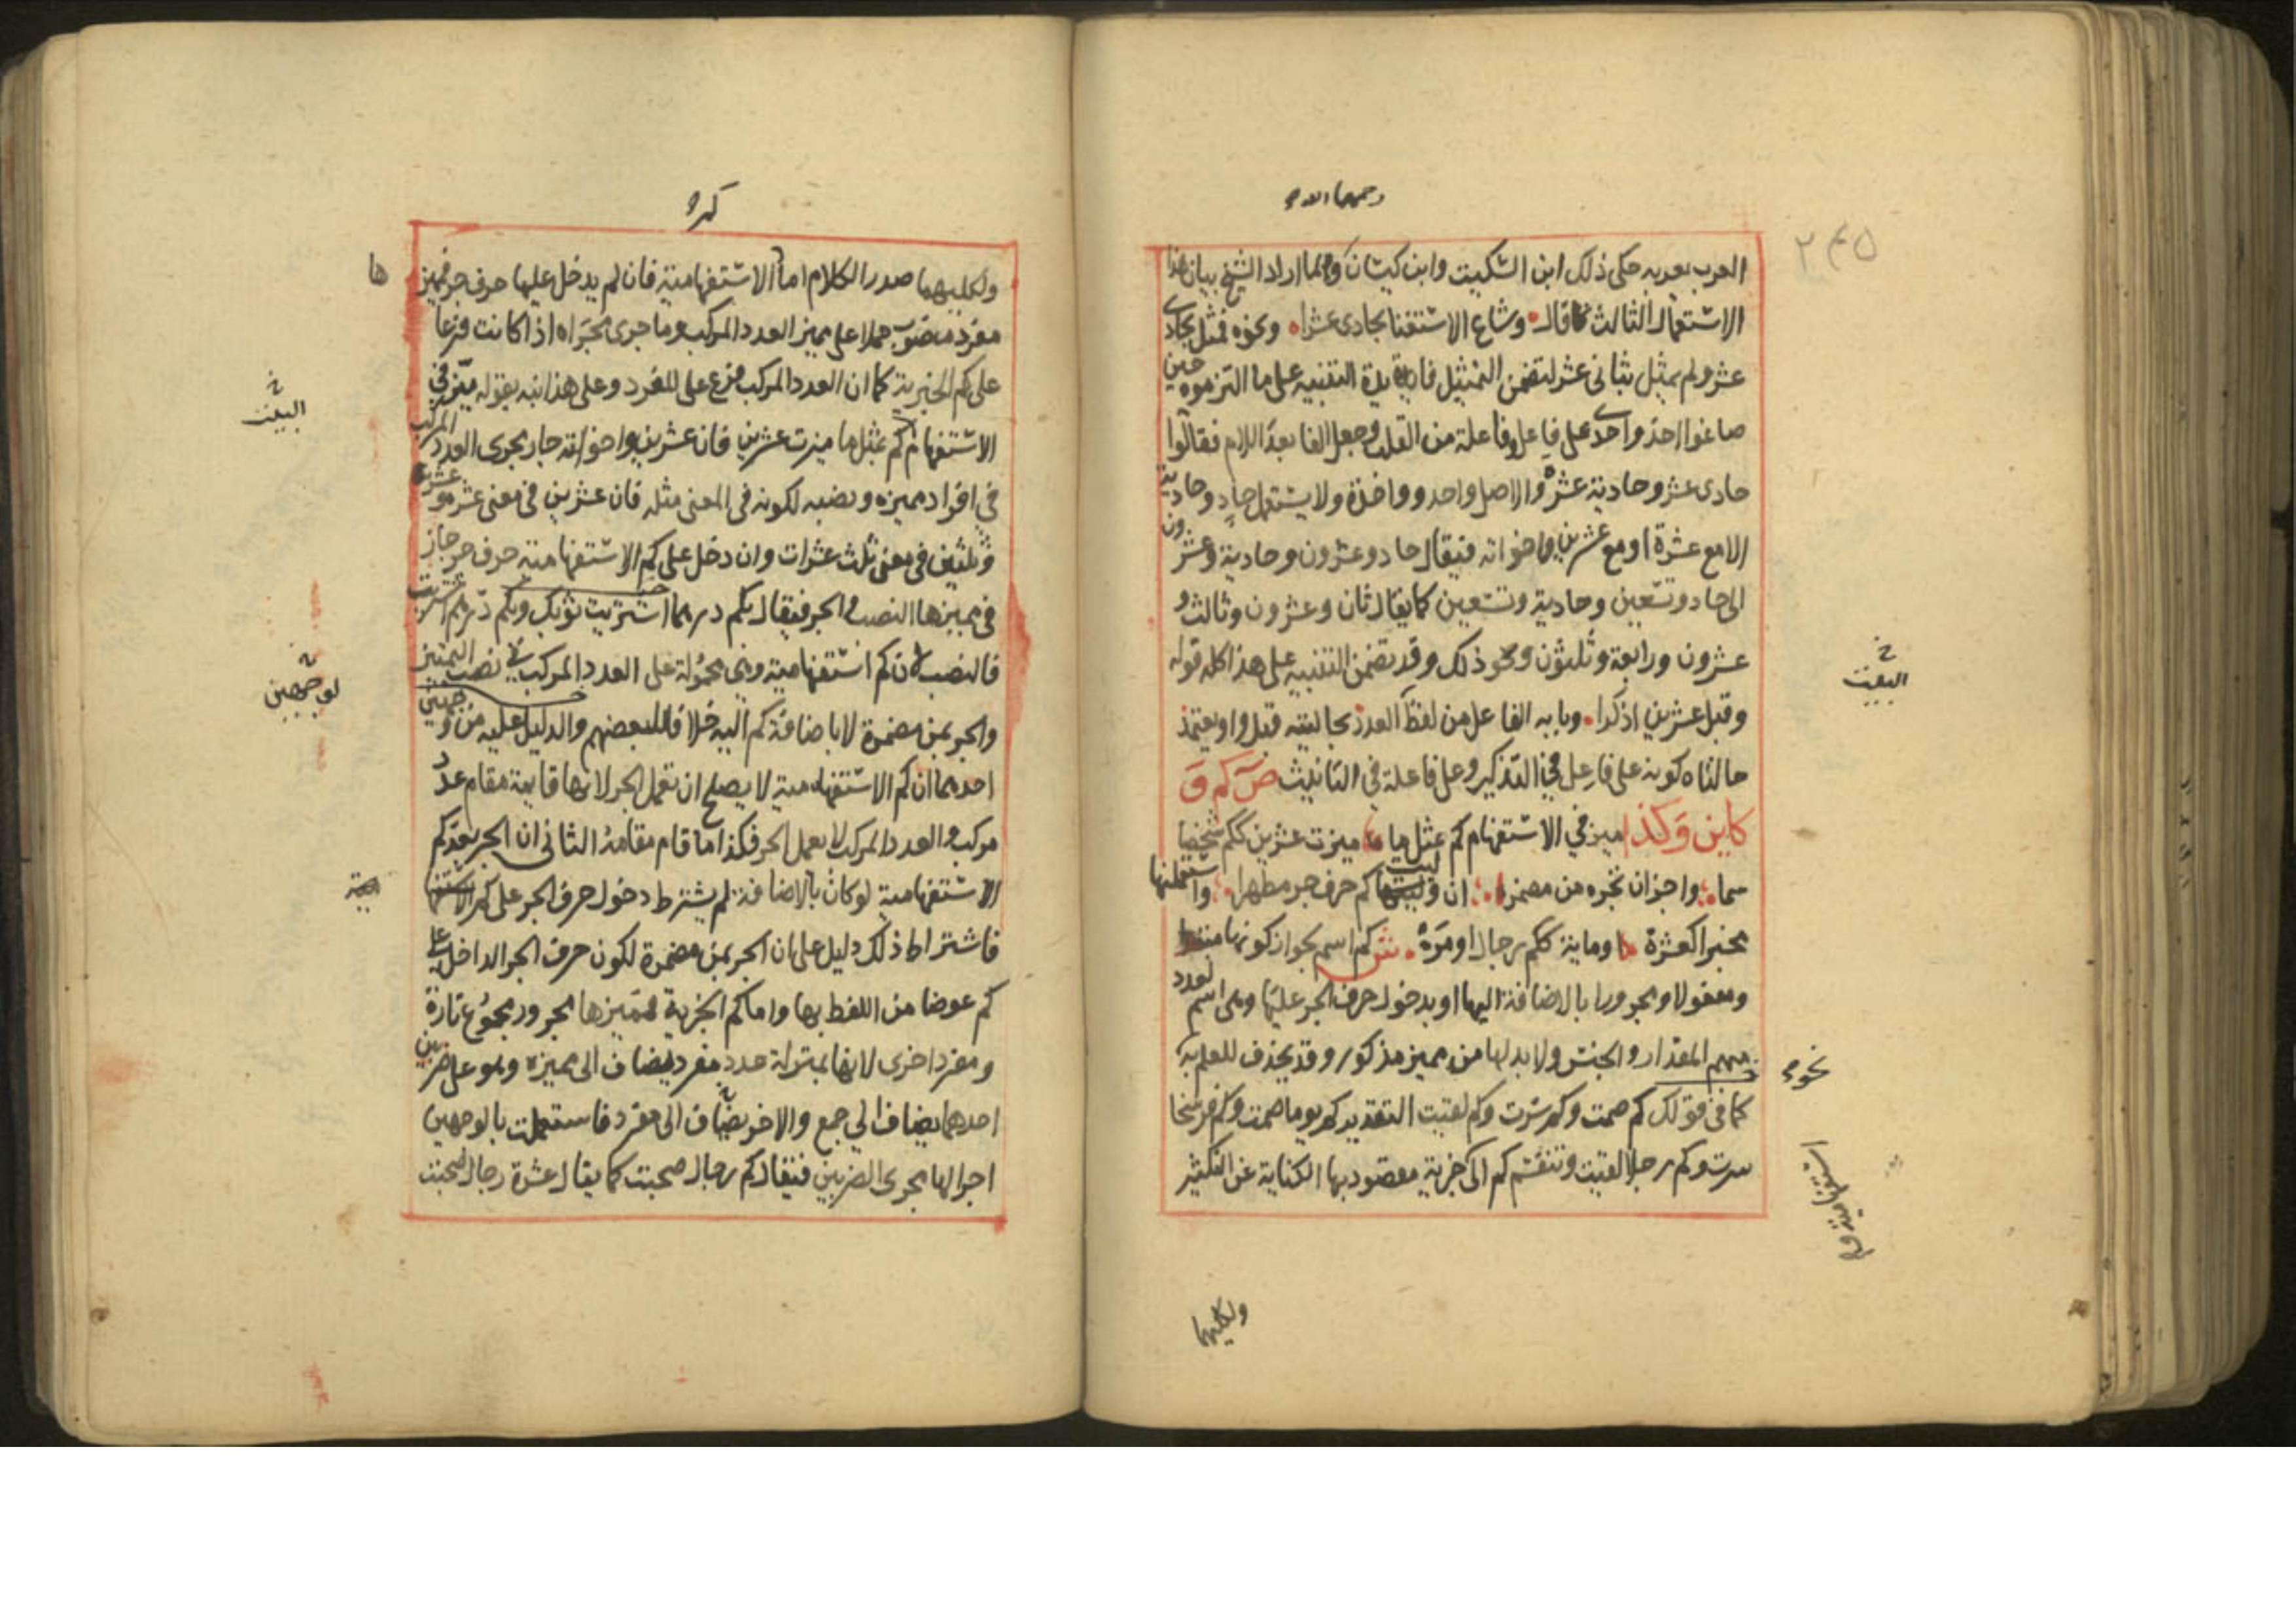 رحمهما الله
٢٤٥
العرب يعربه حكى ذلك ابن السكيت وابن كيسان وانما اراد الشيخ بيان هذا
الاستعمال الثالث فقال وشاع الاستغنا بحادى عشرا ونحوه فمثل بحادى
عشر ولم يمثل بثانى عشر ليتضمن التمثيل فايدة التنبيه على ما التزموه حين
صاغوا احد واحدى على فاعل وفاعلة من القلب وجعل الفا بعد اللام فقالوا
حادى عشر وحادية عشرة والاصل واحد وواحدة ولا يستعمل حاد وحادية
الا مع عشرة او مع عشرين واخواته فيقال حاد وعشرون وحادية وعشرون
الى حاد وتسعين وحادية وتسعين كما يقال ثان وعشرون وثالث و
عشرون ورابعة وثلثون ونحو ذلك وقد تضمن التنبيه على هذا كله قوله
وقبل عشرين اذكرا وبابه الفاعل من لفظ العدد بحالتيه قبل واو يعتمد
حالتاه كونه على فاعل في التذكير وعلى فاعلة في التانيث ص كم و
كاين وكذا ميز في الاستفهام كم بمثل ما ميزت عشرين ككم شخصا
سما واجز ان تجره من مضمرا ان وليت كم حرف جر مظهرا واستعملنها
مخبرا كعشرة او ماية ككم رجال او مره ش كم اسم لجواز كونها مبتدا
ومفعولا ومجرورا بالاضافة اليها او بدخول حرف الجر عليها وهى اسم لعدد
مبهم المقدار والجنس ولا بد لها من مميز مذكور وقد يحذف للعلم به
كما في قولك كم صمت وكم سرت وكم لقيت التقدير كم يوما صمت وكم فرسخا
سرت وكم رجلا لقيت وتنقسم كم الى خبرية مقصود بها الكناية عن التكثير
البيت
نحو
استفهامية و
ولكليهما
كم
ولكليهما صدر الكلام اما الاستفهامية فان لم يدخل عليها حرف جر فمميزها
مفرد منصوب حملا على مميز العدد المركب وما جرى مجراه اذا كانت فرعا
على كم الخبرية كما ان العدد المركب فرع على المفرد وعلى هذا نبه بقوله ميز في
الاستفهام كم بمثل ما ميزت عشرين فان عشرين واخواته جار مجرى العدد المركب
في افراد مميزه ونصبه لكونه في المعنى مثله فان عشرين في معنى عشرة وعشرة
وثلثين في معنى ثلث عشرات وان دخل على كم الاستفهامية حرف جر جاز
في مميزها النصب والجر فيقال بكم درهما اشتريت ثوبك وبكم درهم اشتريت
فالنصب لان كم استفهامية وهى محمولة على العدد المركب في نصب التمييز
والجر بمن مضمرة لا باضافة كم اليه خلافا لبعضهم والدليل عليه من وجهين
احدهما ان كم الاستفهامية لا يصلح ان تعمل الجر لانها قايمة مقام عدد
مركب والعدد المركب لا يعمل الجر فكذا ما قام مقامه الثانى ان الجر بعد كم
الاستفهامية لو كان بالاضافة لم يشترط دخول حرف الجر على كم
فاشتراط ذلك دليل على ان الجر بمن مضمرة لكون حرف الجر الداخل على
كم عوضا من اللفظ بها واما كم الخبرية فمميزها مجرور مجموع تارة
ومفرد اخرى لانها بمنزلة عدد مفرد يضاف الى مميزه وهو على ضربين
احدهما يضاف الى جمع والاخر يضاف الى مفرد فاستعملت بالوجهين
اجرا لها مجرى الضربين فيقال كم رجال صحبت كما يقال عشرة رجال صحبت
ها
البيت
لوجهين